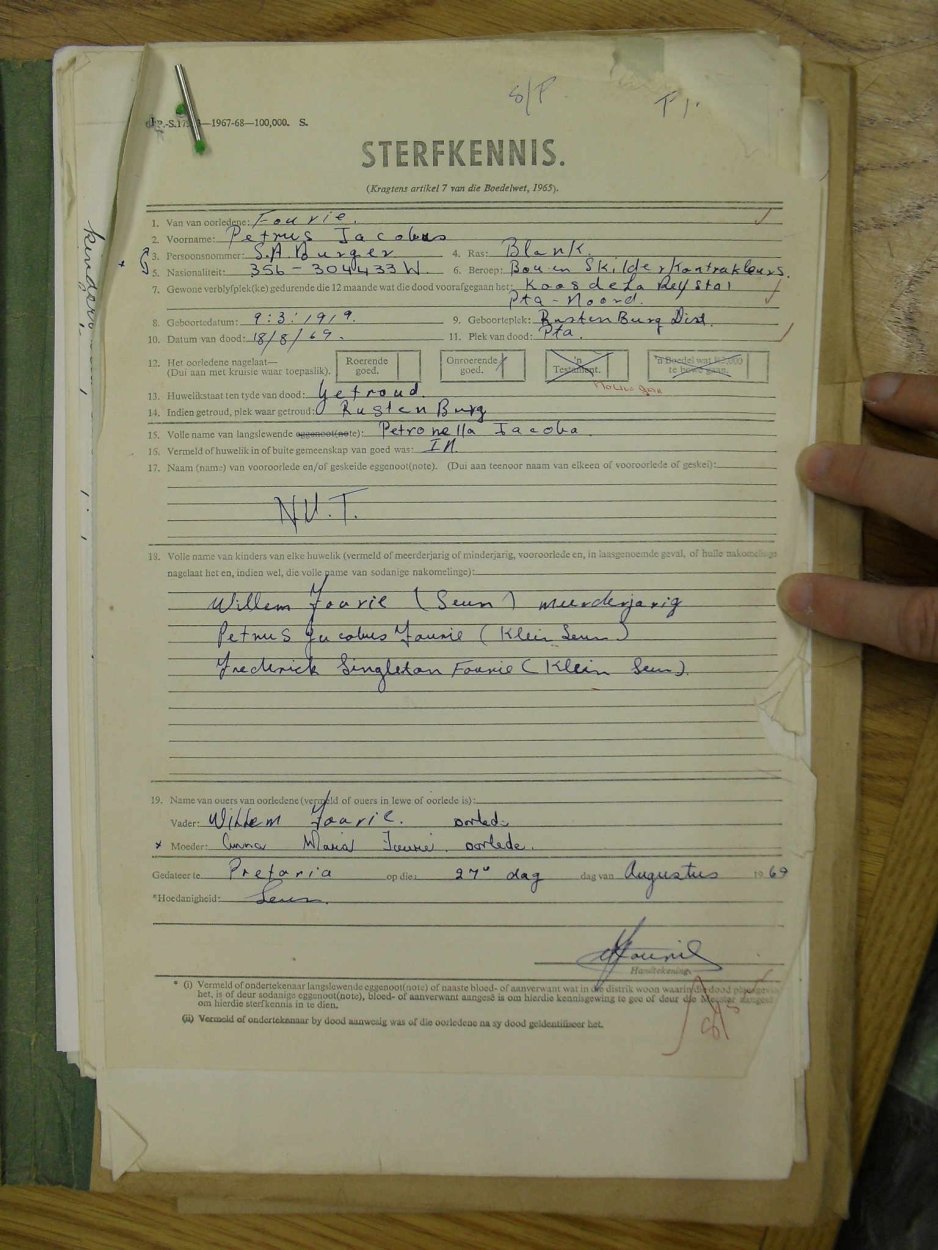 S/P
P1.
—1967-68—100,000. S.
STERFKENNIS.
(Kragtens artikel 7 van die Boedelwet, 1965).
1. Van van oorledene: Fourie.
2. Voorname: Petrus Jacobus
3. Persoonsnommer: S.A. Burger 4. Ras: Blank.
5. Nasionaliteit: 356-304433W. 6. Beroep: Bou en Skilder Kontrakteurs.
7. Gewone verblyfplek(ke) gedurende die 12 maande wat die dood voorafgegaan het: Koos de La Rey Stal
Pta-Noord.
8. Geboortedatum: 9:3:1919. 9. Geboorteplek: Rustenburg Dist.
10. Datum van dood: 18/8/69. 11. Plek van dood: Pta.
12. Het oorledene nagelaat— Roerende Onroerende 'n 'n Boedel wat
(Dui aan met kruisie waar toepaslik). goed. goed. Testament. te bowe gaan.
13. Huwelikstaat ten tyde van dood: Getroud.
14. Indien getroud, plek waar getroud: RustenBurg
15. Volle name van langslewende eggenoot(note): Petronella Jacoba
16. Vermeld of huwelik in of buite gemeenskap van goed was: IN.
17. Naam (name) van vooroorlede en/of geskeide eggenoot(note). (Dui aan teenoor naam van elkeen of vooroorlede of geskei):
N.V.T.
18. Volle name van kinders van elke huwelik (vermeld of meerderjarig of minderjarig, vooroorlede en, in laasgenoemde geval, of hulle nakomelinge
nagelaat het en, indien wel, die volle name van sodanige nakomelinge):
Willem Fourie (Seun) meerderjarig
Petrus Jacobus Fourie (Klein Seun)
Frederick Singleton Fourie (Klein Seun).
19. Name van ouers van oorledene (vermeld of ouers in lewe of oorlede is):
Vader: Willem Fourie. oorlede
* Moeder: Anna Maria Fourie. oorlede.
Gedateer te Pretoria op die: 27ᵉ dag dag van Augustus 1969
*Hoedanigheid: Seun.
Handtekening.
* (i) Vermeld of ondertekenaar langslewende eggenoot(note) of naaste bloed- of aanverwant wat in die distrik woon waarin die dood plaasgevind
het, is of deur sodanige eggenoot(note), bloed- of aanverwant aangesê is om hierdie kennisgewing te gee of deur die Meester aangesê
om hierdie sterfkennis in te dien.
(ii) Vermeld of ondertekenaar by dood aanwesig was of die oorledene na sy dood geïdentifiseer het.
kinders